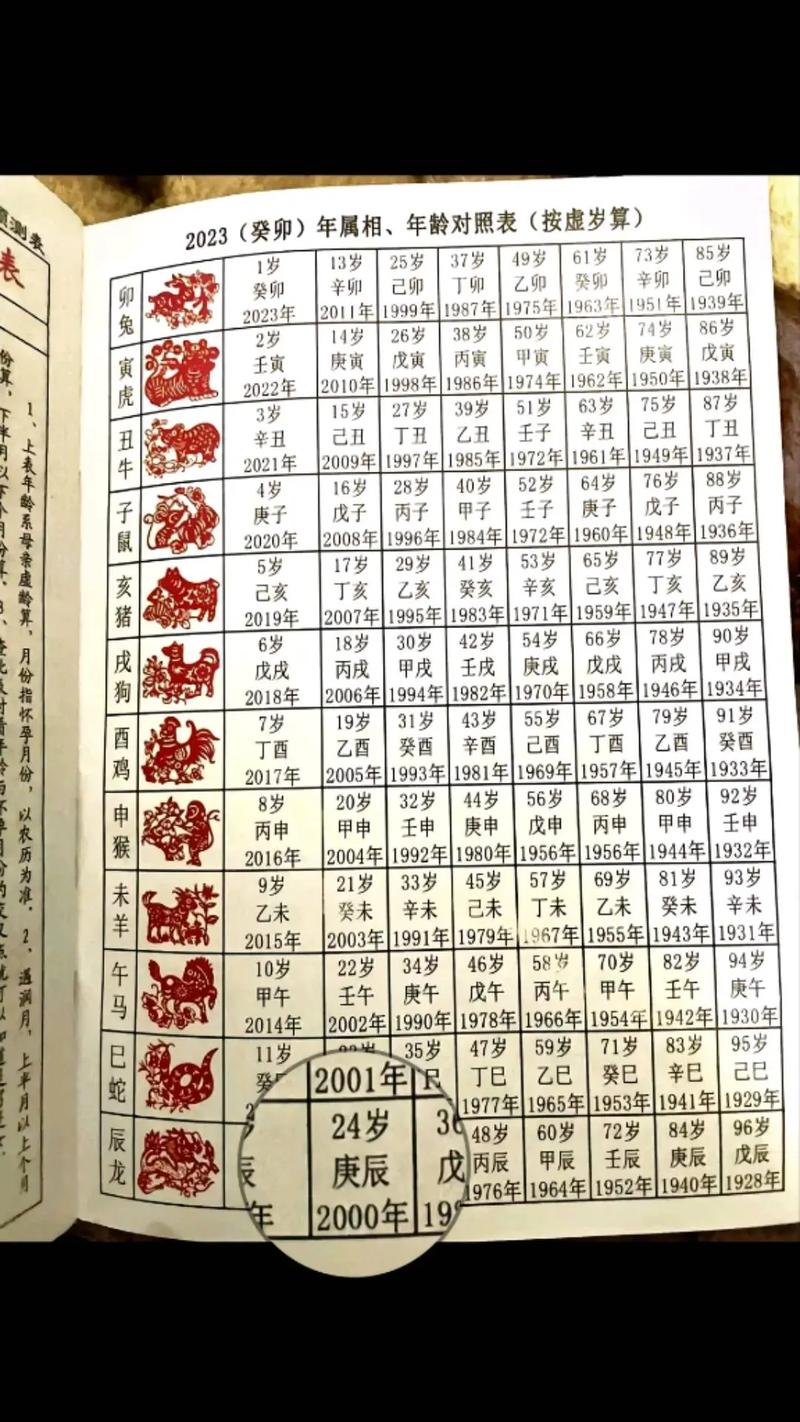 测表
表
1、上表年龄系母亲虚龄算，月份指怀孕月份，以农历为准。2、遇润月，上半月以上个月
份算，下半月以下个月份算。3、
2023（癸卯）年属相、年龄对照表（按虚岁算）
卯兔
1岁 13岁 25岁 37岁 49岁 61岁 73岁 85岁
癸卯 辛卯 己卯 丁卯 乙卯 癸卯 辛卯 己卯
2023年 2011年 1999年 1987年 1975年 1963年 1951年 1939年
寅虎
2岁 14岁 26岁 38岁 50岁 62岁 74岁 86岁
壬寅 庚寅 戊寅 丙寅 甲寅 壬寅 庚寅 戊寅
2022年 2010年 1998年 1986年 1974年 1962年 1950年 1938年
丑牛
3岁 15岁 27岁 39岁 51岁 63岁 75岁 87岁
辛丑 己丑 丁丑 乙丑 壬子 辛丑 己丑 丁丑
2021年 2009年 1997年 1985年 1972年 1961年 1949年 1937年
子鼠
4岁 16岁 28岁 40岁 52岁 64岁 76岁 88岁
庚子 戊子 丙子 甲子 壬子 庚子 戊子 丙子
2020年 2008年 1996年 1984年 1972年 1960年 1948年 1936年
亥猪
5岁 17岁 29岁 41岁 53岁 65岁 77岁 89岁
己亥 丁亥 乙亥 癸亥 辛亥 己亥 丁亥 乙亥
2019年 2007年 1995年 1983年 1971年 1959年 1947年 1935年
戌狗
6岁 18岁 30岁 42岁 54岁 66岁 78岁 90岁
戊戌 丙戌 甲戌 壬戌 庚戌 戊戌 丙戌 甲戌
2018年 2006年 1994年 1982年 1970年 1958年 1946年 1934年
酉鸡
7岁 19岁 31岁 43岁 55岁 67岁 79岁 91岁
丁酉 乙酉 癸酉 辛酉 己酉 丁酉 乙酉 癸酉
2017年 2005年 1993年 1981年 1969年 1957年 1945年 1933年
申猴
8岁 20岁 32岁 44岁 56岁 68岁 80岁 92岁
丙申 甲申 壬申 庚申 戊申 丙申 甲申 壬申
2016年 2004年 1992年 1980年 1956年 1956年 1944年 1932年
未羊
9岁 21岁 33岁 45岁 57岁 69岁 81岁 93岁
乙未 癸未 辛未 己未 丁未 乙未 癸未 辛未
2015年 2003年 1991年 1979年 1967年 1955年 1943年 1931年
午马
10岁 22岁 34岁 46岁 58岁 70岁 82岁 94岁
甲午 壬午 庚午 戊午 丙午 甲午 壬午 庚午
2014年 2002年 1990年 1978年 1966年 1954年 1942年 1930年
巳蛇
11岁 35岁 47岁 59岁 71岁 83岁 95岁
癸 巳 丁巳 乙巳 癸巳 辛巳 己巳
2001年 1977年 1965年 1953年 1941年 1929年
辰龙
24岁 36 48岁 60岁 72岁 84岁 96岁
辰 庚辰 戊 丙辰 甲辰 壬辰 庚辰 戊辰
年 2000年 19 1976年 1964年 1952年 1940年 1928年